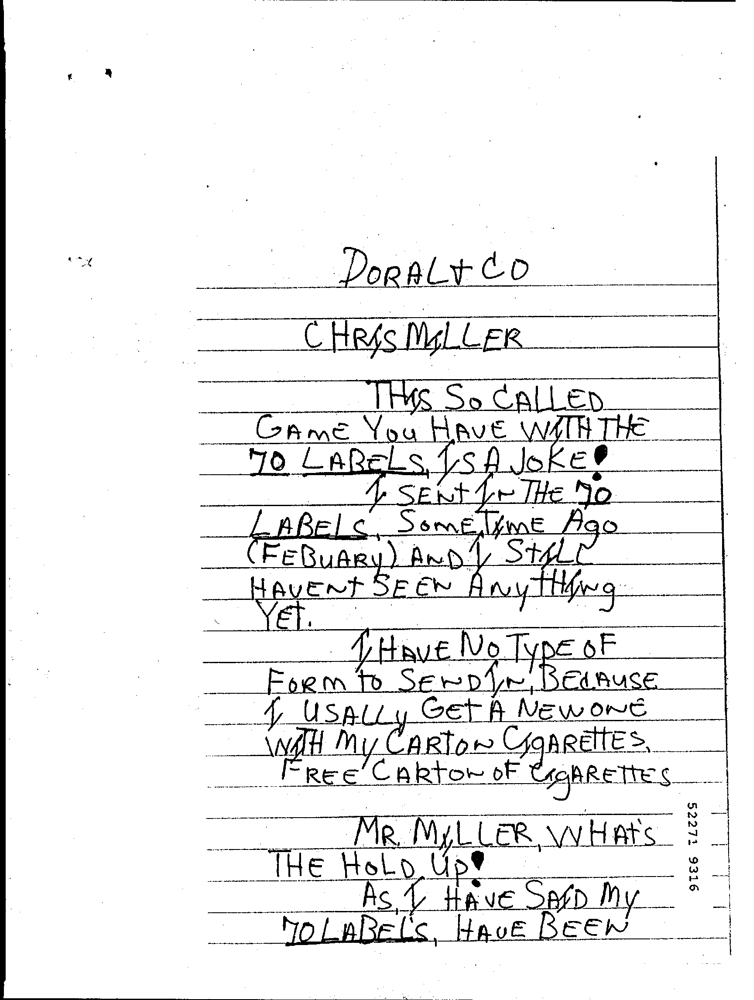 DORAL & CO
CHRIS MILLER
THIS SO CALLED
GAME YOU HAVE WITH THE
70 LABELS, IS A JOKE!
I SENT IN THE 70
LABELS, SOMETIME AGO
(FEBUARY) AND I STILL
HAVENT SEEN ANYTHING
YET.
I HAVE NO TYPE OF
FORM TO SEND IN, BECAUSE
I USALLY GET A NEW ONE
WITH MY CARTON CIGARETTES.
FREE CARTON OF CIGARETTES
MR. MILLER, WHAT'S
THE HOLD UP!
AS, I HAVE SAID MY
70 LABEL'S, HAVE BEEN
52271 9316